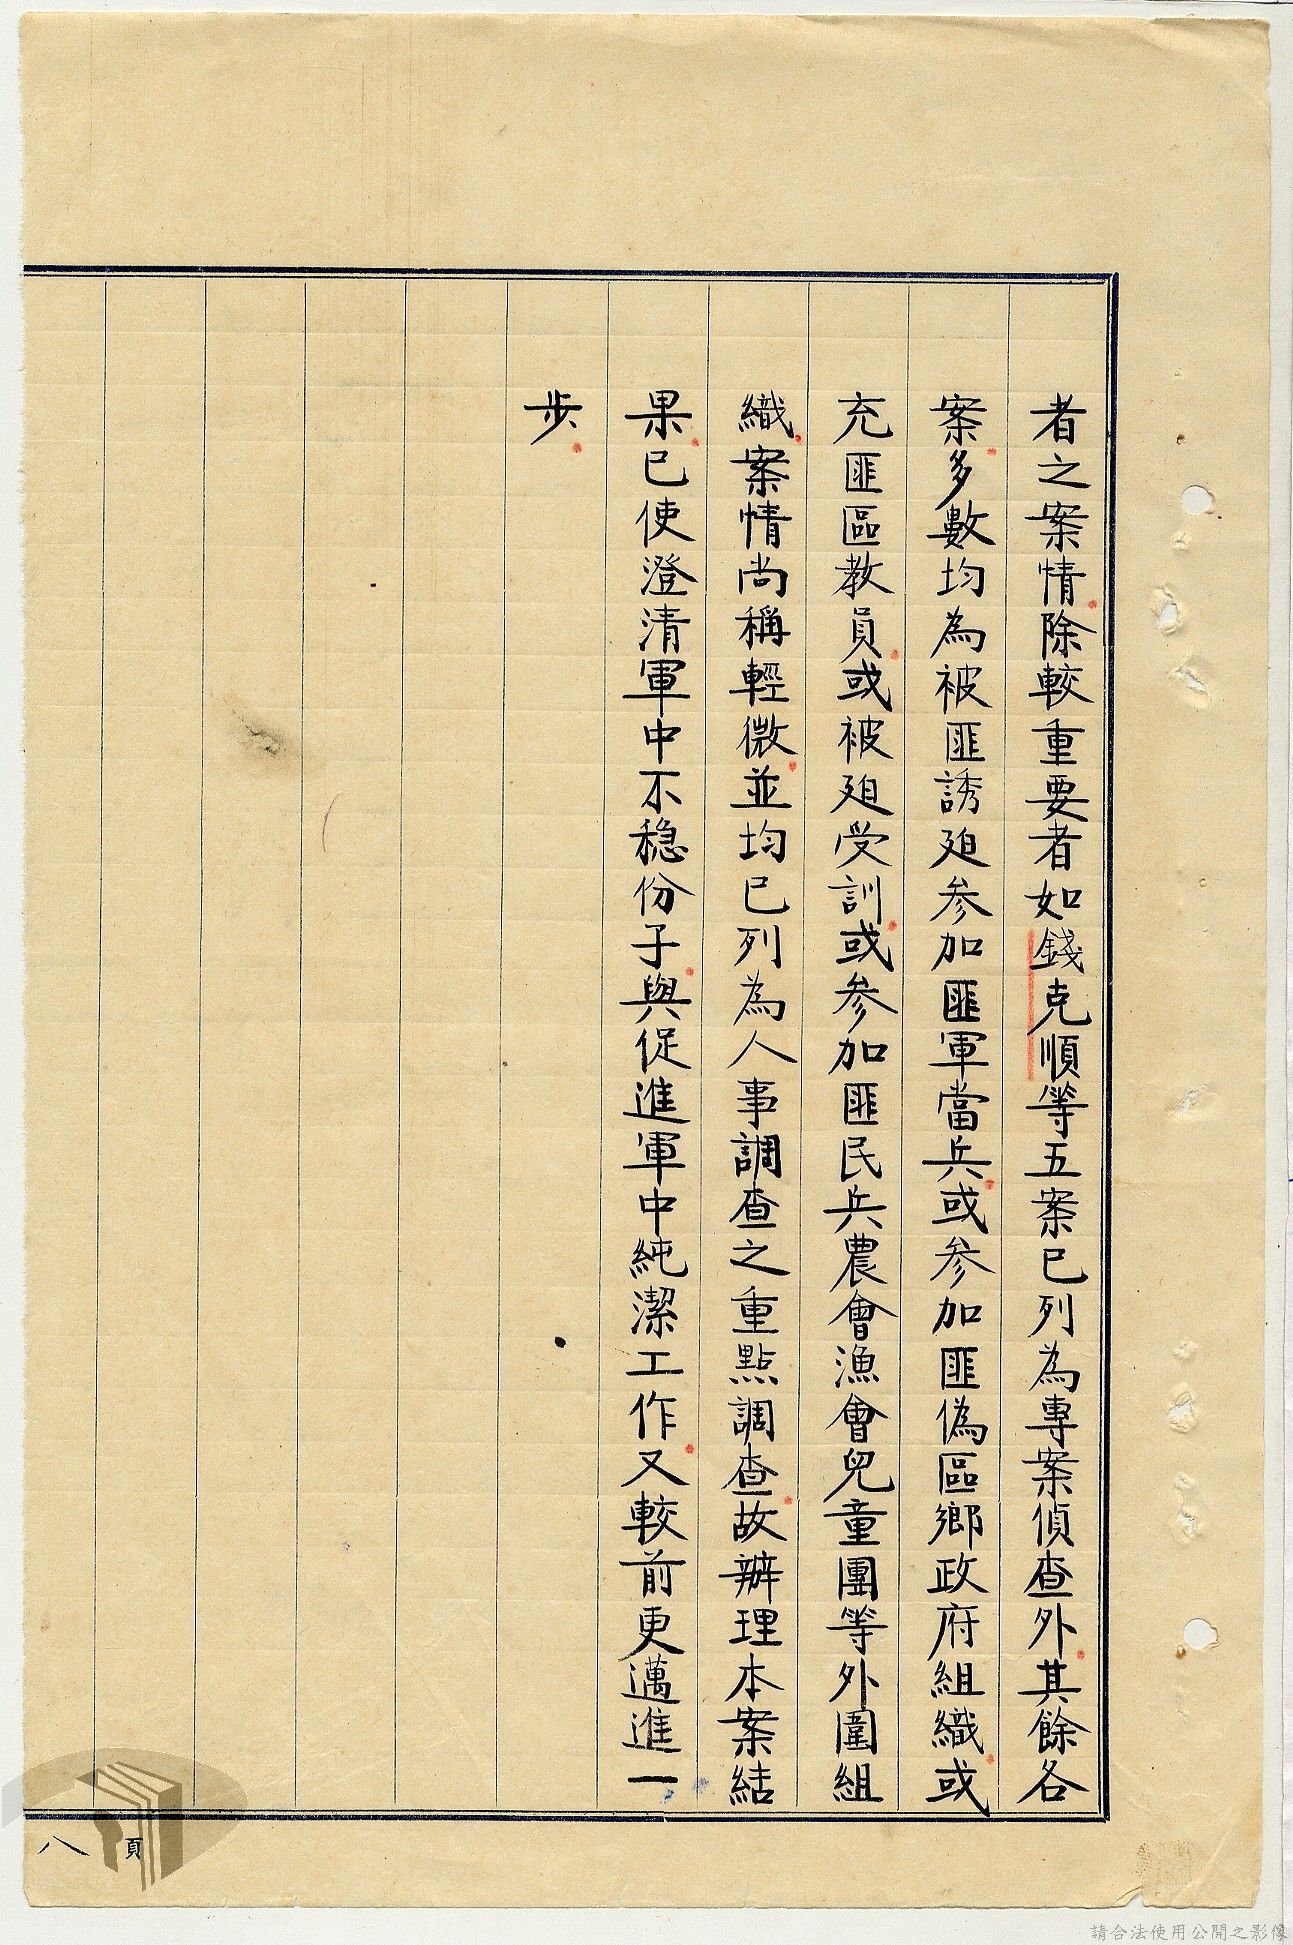 者之案情除較重要者如錢克順等五案已列為專案偵查外其餘各
案多數均為被匪誘廹參加匪軍當兵或參加匪偽區鄉政府組織或
充匪區教員或被廹受訓或參加匪民兵農會漁會兒童團等外圍組
織案情尚稱輕微並均已列為人事調查之重點調查故辦理本案結
果已使澄清軍中不穩份子與促進軍中純潔工作又較前更邁進一
步
頁
八
請合法使用公開之影像